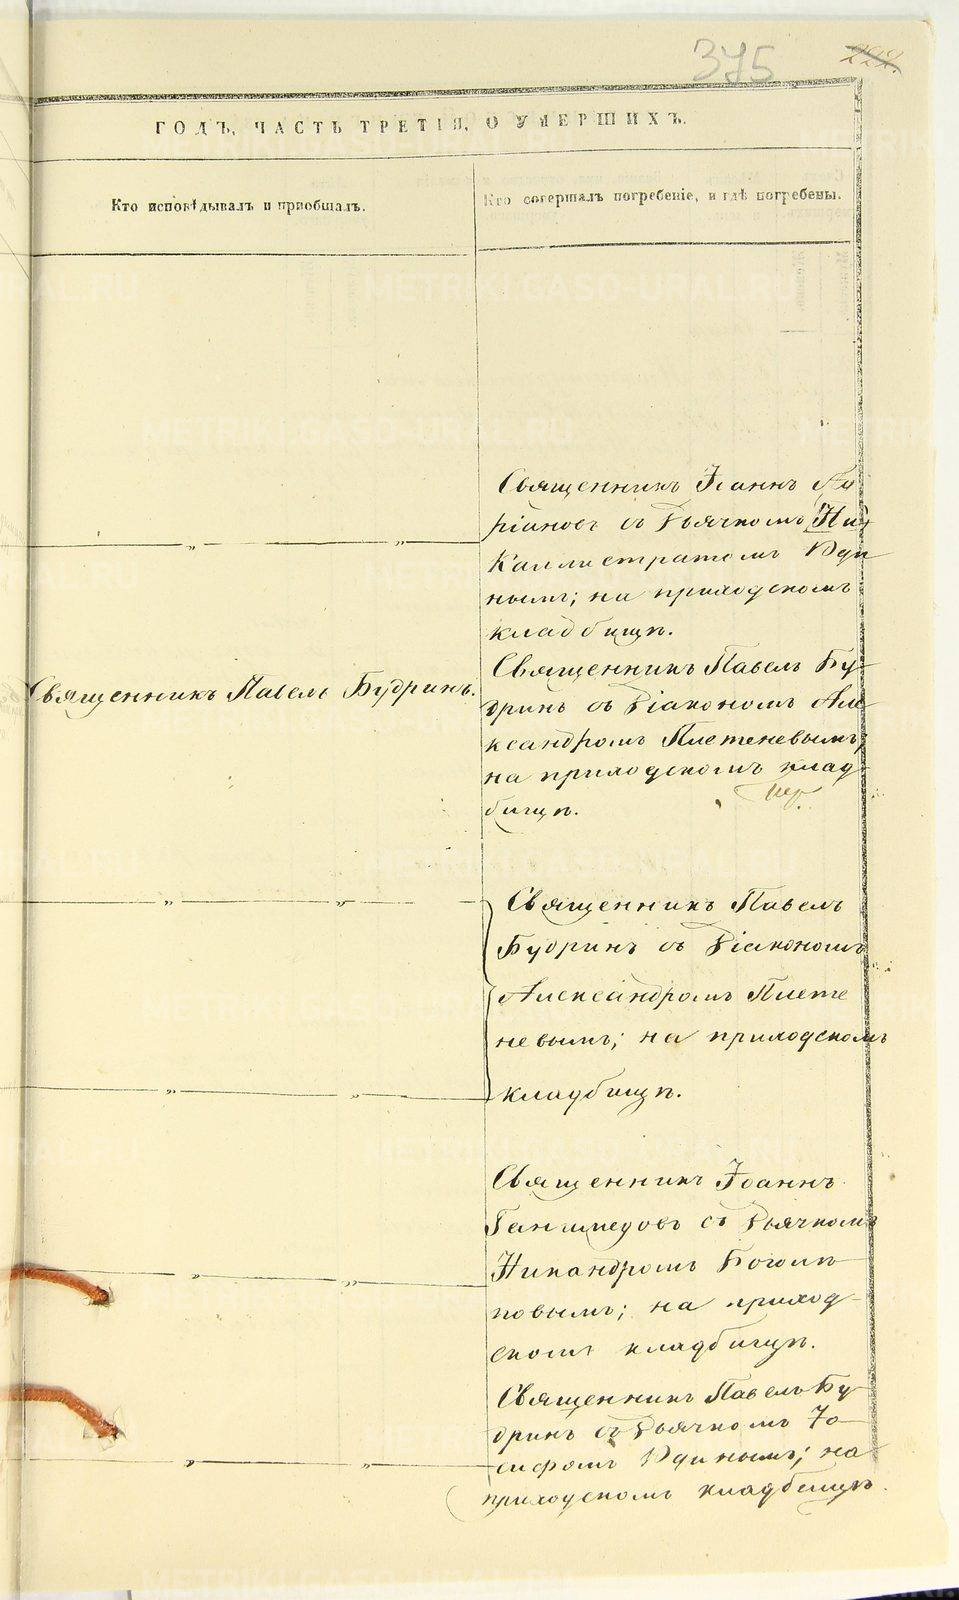 375
222.
ГОДЪ, ЧАСТЬ ТРЕТІЯ, О УМЕРШИХЪ.
Кто исповѣдывалъ и пріобщалъ.
Кто совершалъ погребеніе, и гдѣ погребены.
Священникъ Іоаннъ
съ Дьячкомъ
Каллистратомъ Уди
нымъ; на приходскомъ
кладбищѣ.
Священникъ Павелъ Будринъ.
Священникъ Павелъ Бу-
дринъ съ Діакономъ Але
ксандромъ Плетеневымъ;
на приходскомъ клад-
бищѣ.
Священникъ Павелъ
Будринъ съ Діакономъ
Александромъ Плете
невымъ; на приходскомъ
кладбищѣ.
Священникъ Іоаннъ
Ганимедовъ съ Дьячкомъ
Никандромъ Боголѣ-
повымъ; на приход-
скомъ кладбищѣ.
Священникъ Павелъ Бу-
дринъ съ Дьячкомъ Іо-
сифомъ Удинымъ; на
приходскомъ кладбищѣ.
METRIKI.GASO-URAL.RU